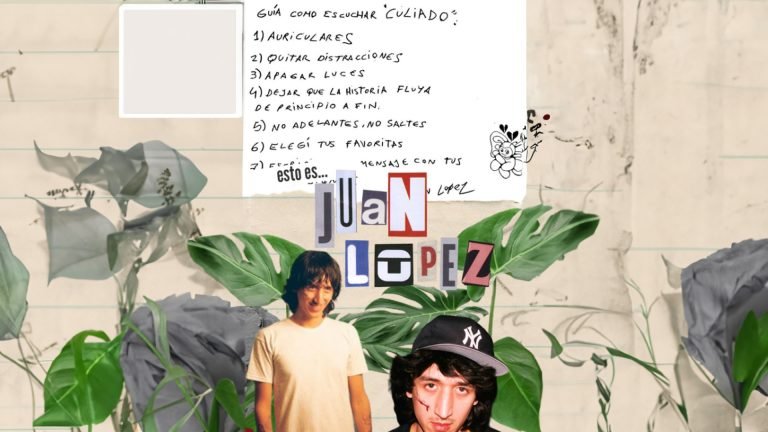 GUÍA COMO ESCUCHAR "CULIADO":
1) AURICULARES
2) QUITAR DISTRACCIONES
3) APAGAR LUCES
4) DEJAR QUE LA HISTORIA FLUYA
DE PRINCIPIO A FIN.
5) NO ADELANTES, NO SALTES
6) ELEGÍ TUS FAVORITAS
7) MENSAJE CON TUS
LOPEZ
esto es...
JUaN
LOPEZ
NY